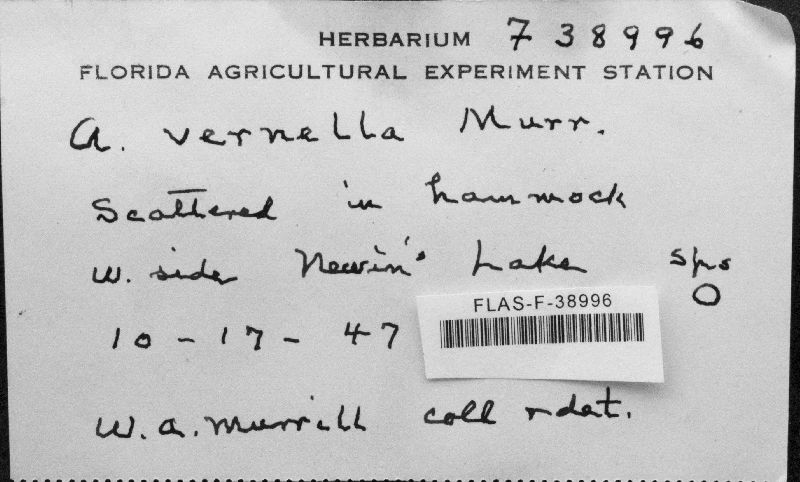 HERBARIUM F 38996
FLORIDA AGRICULTURAL EXPERIMENT STATION
A. vernella Murr.
Scattered in hammock
w. side Newin's Lake sps
O
FLAS-F-38996
10-17-47
W.A. Murrill coll & det.